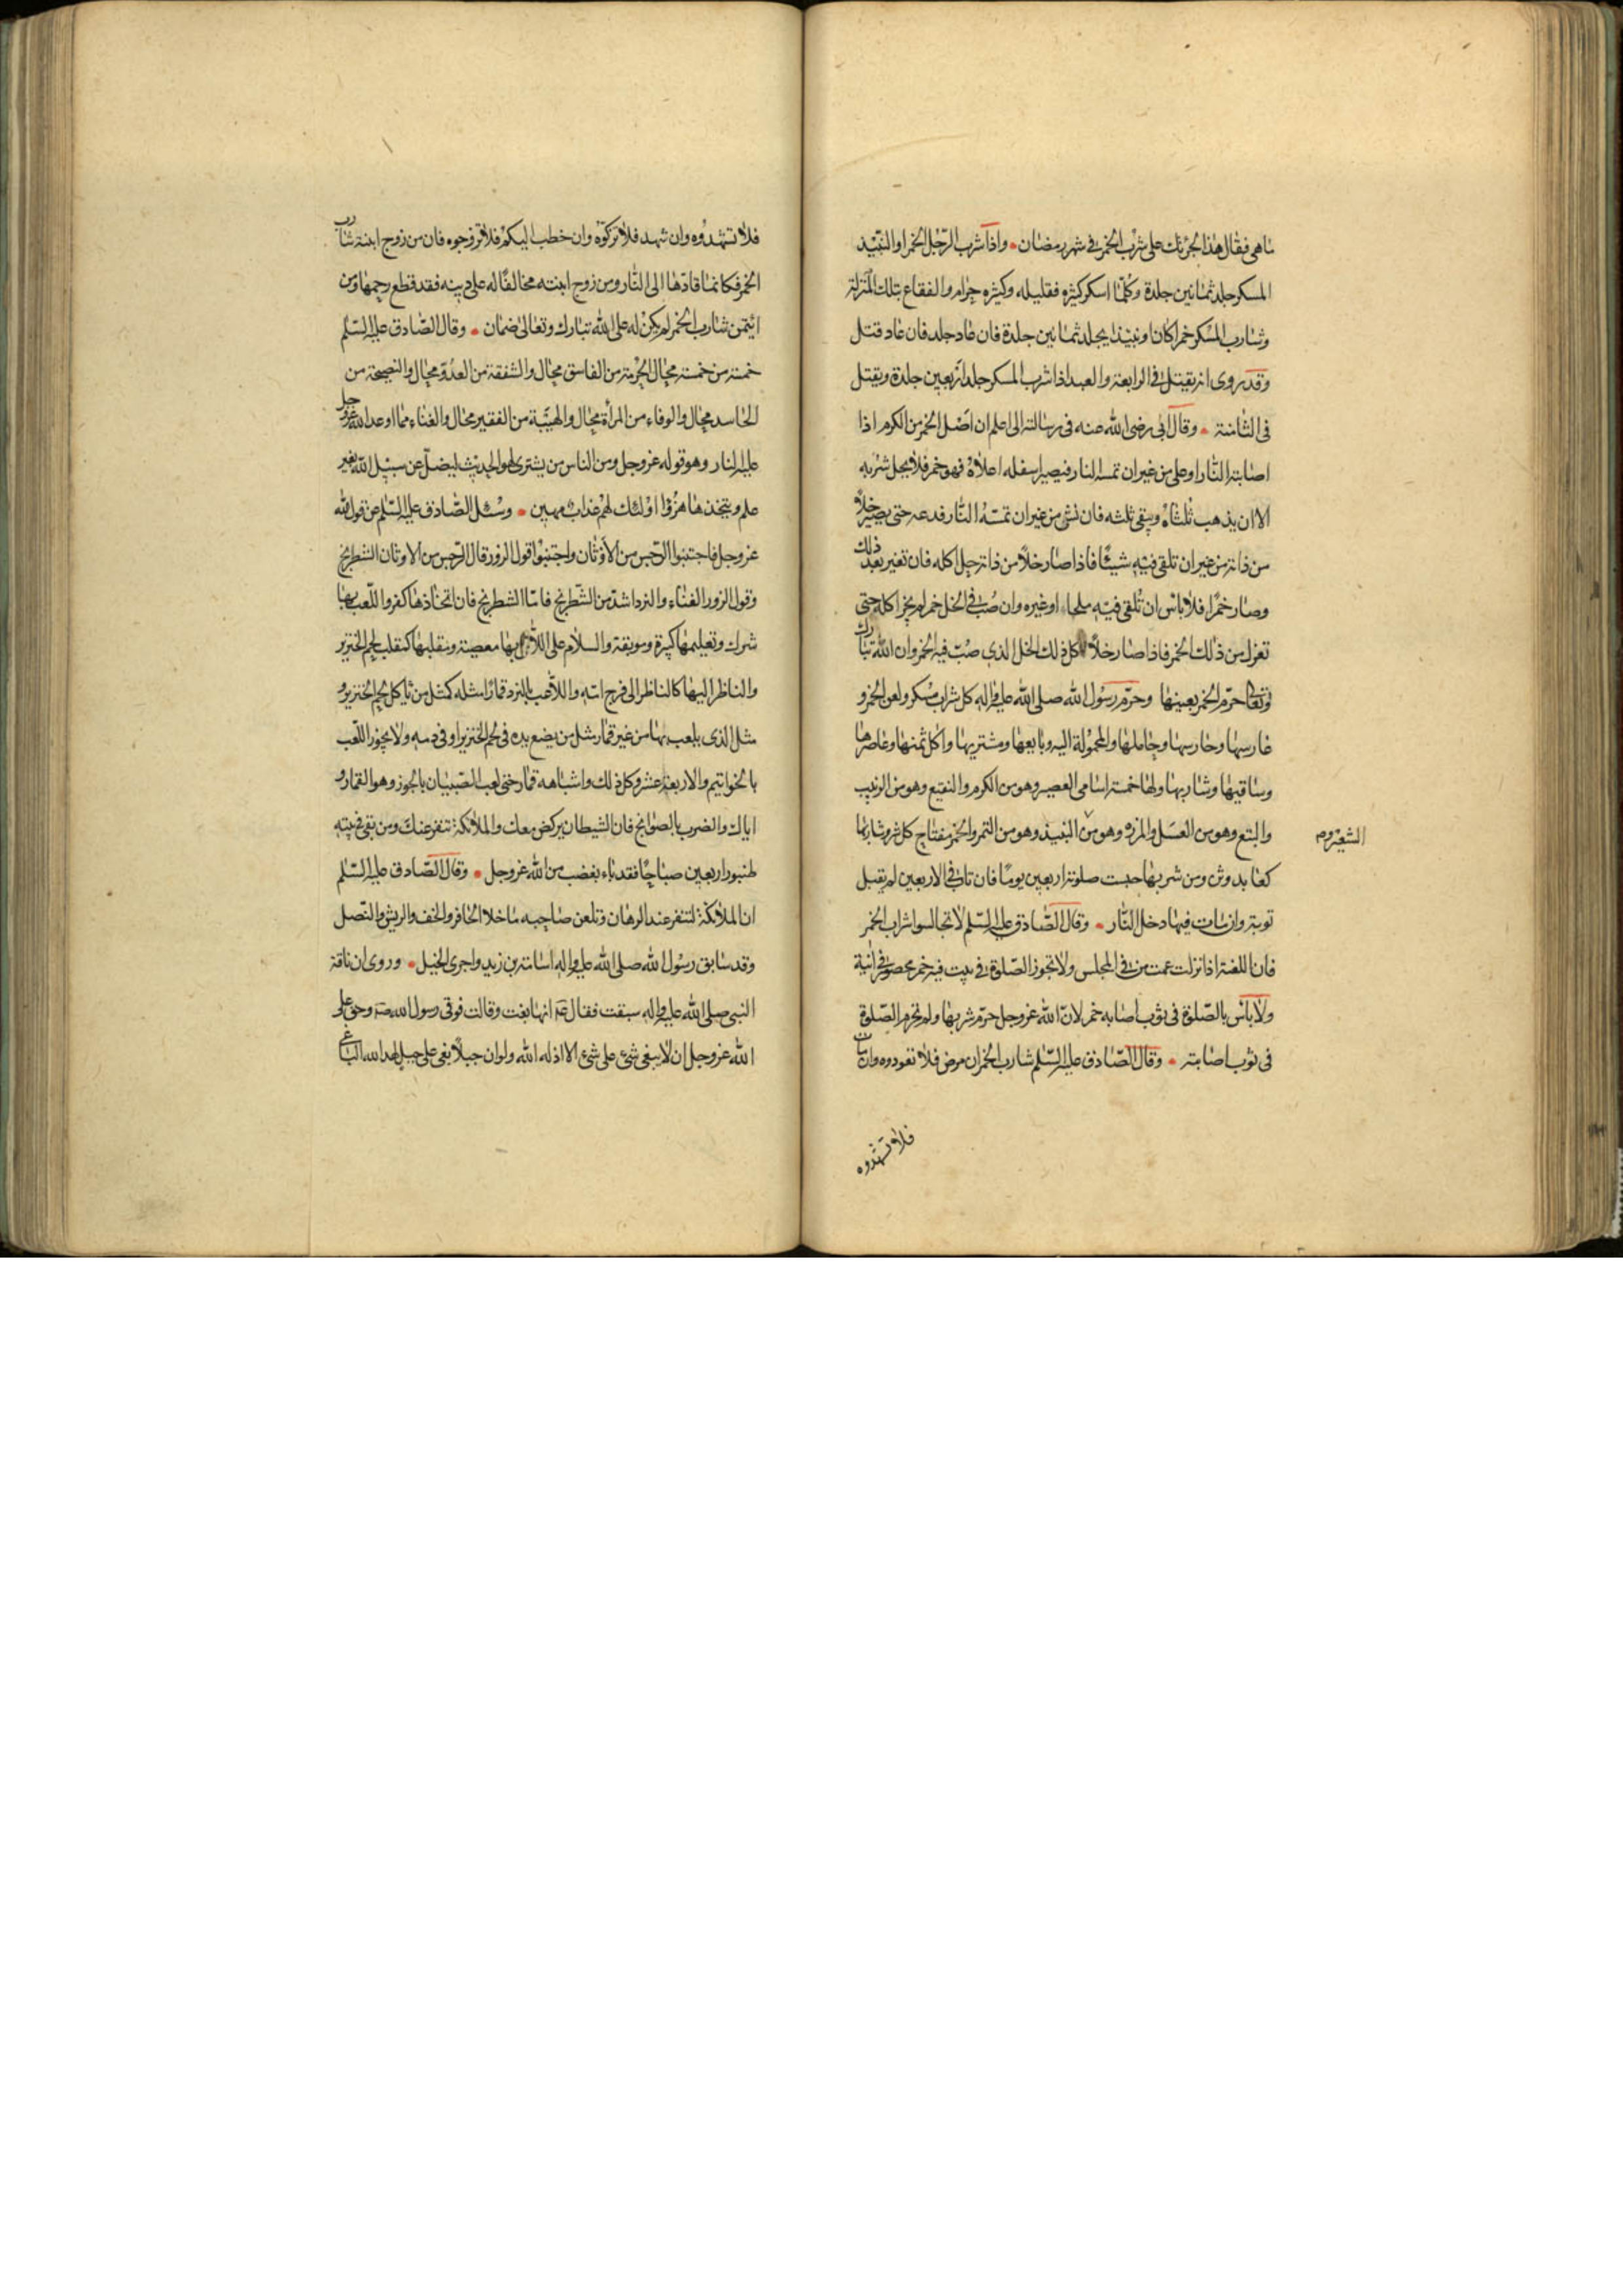 ماهى فقال هذا لجرئتك على شرب الخمر فى شهر رمضان • واذا شرب الرّجل الخمر او النّبيذ
المسكر جلد ثمانين جلدة وكلّما اسكر كثيره فقليله وكثيره حرام والفقاع بتلك المنزلة
وشارب المسكر خمرا كان او نبيذا يجلد ثمانين جلدة فان عاد جلد فان عاد قتل
وقد روى انه يقتل فى الرابعة والعبد اذا شرب المسكر جلد اربعين جلدة ويقتل
فى الثّامنة • وقال ابى رضى الله عنه فى رسالته الى اعلم ان اصل الخمر من الكرم اذا
اصابته النّار او غلى من غير ان تمسه النار فيصير اسفله اعلاه فهو خمر فلا يحل شربه
الا ان يذهب ثلثاه ويبقى ثلثه فان نش من غير ان تمسّه النّار فدعه حتى يصير خلّا
من ذاته من غير ان تلقى فيه شيئًا فاذا صار خلّا من ذاته حل اكله فان تغير بعد ذلك
وصار خمرًا فلا باس ان تُلقى فيه ملحا او غيره وان صُبّ فى الخل خمر لم يجز اكله حتى
تعزل من ذلك الخمر فاذا صار خلّا اكل ذلك الخل الذى صبّ فيه الخمر وان الله تبارك
وتعا حرّم الخمر بعينها وحرّم رسول الله صلى الله عليه واله كل شراب مسكر ولعن الخمر و
غارسها وحارسها وحاملها والمحمولة اليه وبايعها ومشتريها واكل ثمنها وعاصرها
وساقيها وشاربها ولها خمسة اسامى العصير وهو من الكرم والنقيع وهو من الزبيب
والبتع وهو من العسل والمزر وهو من النبيذ وهو من التمر والخمر مفتاح كل شر وشاربها
الشعير وم
كعابد وثن ومن شربها حبست صلوته اربعين يومًا فان تاب فى الاربعين لم يقبل
توبته وان مات فيها دخل النّار • وقال الصّادق عليه السّلم لا تجالسوا شراب الخمر
فان اللعنة اذا نزلت عمت من فى المجلس ولا تجوز الصّلوة فى بيت فيه خمر محصور فى انية
ولا باس بالصّلوة فى ثوب اصابه خمر لانّ الله عز وجل حرّم شربها ولم يحرم الصّلوة
فى ثوب اصابته • وقال الصّادق عليه السّلم شارب الخمر ان مرض فلا تعودوه وان مات
فلا تشهدوه
فلا تشهدوه وان شهد فلا تزكّوه وان خطب اليكم فلا تزوجوه فان من زوج ابنته شارب
الخمر فكانما قادها الى النّار ومن زوج ابنته مخالفًا له على دينه فقد قطع رحمها ومن
ائتمن شارب الخمر لم يكن له على الله تبارك وتعالى ضمان • وقال الصّادق عليه السّلم
خمسة من خمسة محال الحرمة من الفاسق محال والشفقة من العدوّ محال والنصيحة من
الحاسد محال والوفاء من المرأة محال والهيبة من الفقير محال والغناء مما اوعد الله عز وجل
عليه النار وهو قوله عز وجل ومن الناس من يشترى لهو الحديث ليضلّ عن سبيل الله بغير
علم ويتخذها هزوًا اولئك لهم عذاب مهين • وسئل الصّادق عليه السّلم عن قول الله
عز وجل فاجتنبوا الرّجس من الأوثان واجتنبوا قول الزور قال الرّجس من الاوثان الشطرنج
وقول الزور الغناء والنرد اشدّ من الشّطرنج فاما الشطرنج فان اتخاذها كفر واللّعب بها
شرك وتعليمها كبيرة وموبقة والسلام على اللاهى بها معصية ومقلبها كمقلب لحم الخنزير
والناظر اليها كالناظر الى فرج امّه واللاعب بالنرد قمارًا مثله كمثل من ياكل لحم الخنزير و
مثل الذى يلعب بها من غير قمار مثل من يضع يده فى لحم الخنزير او فى دمه ولا يجوز اللّعب
بالخواتيم والاربعة عشر وكل ذلك واشباهه قمار حتى لعب الصّبيان بالجوز وهو القمار و
اياك والضرب بالصوانج فان الشيطان يركض معك والملائكة تنفر عنك ومن بقى فى بيته
طنبور اربعين صباحًا فقد باء بغضب من الله عز وجل • وقال الصّادق عليه السّلم
ان الملائكة لتنفر عند الرهان وتلعن صاحبه ما خلا الحافر والخف والريش والنّصل
وقد سابق رسول الله صلى الله عليه واله اسامة بن زيد واجرى الخيل • وروى ان ناقة
النبى صلى الله عليه واله سبقت فقال ع انها بغت وقالت فوقى رسول الله ص وحق على
الله عز وجل ان لا يبغى شئ على شئ الا اذله الله ولو ان جبلًا بغى على جبل لهد الله الباغى